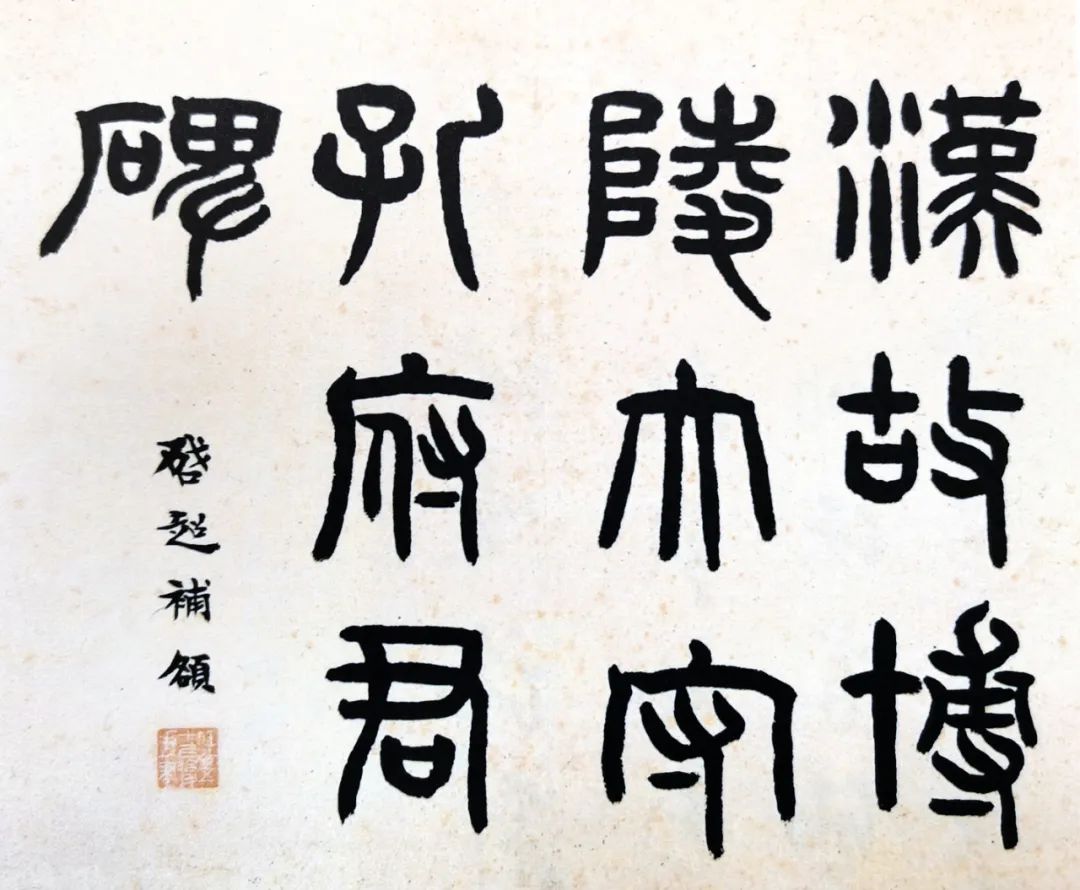 漢故博
陵太守
孔府君
碑
啓超補額